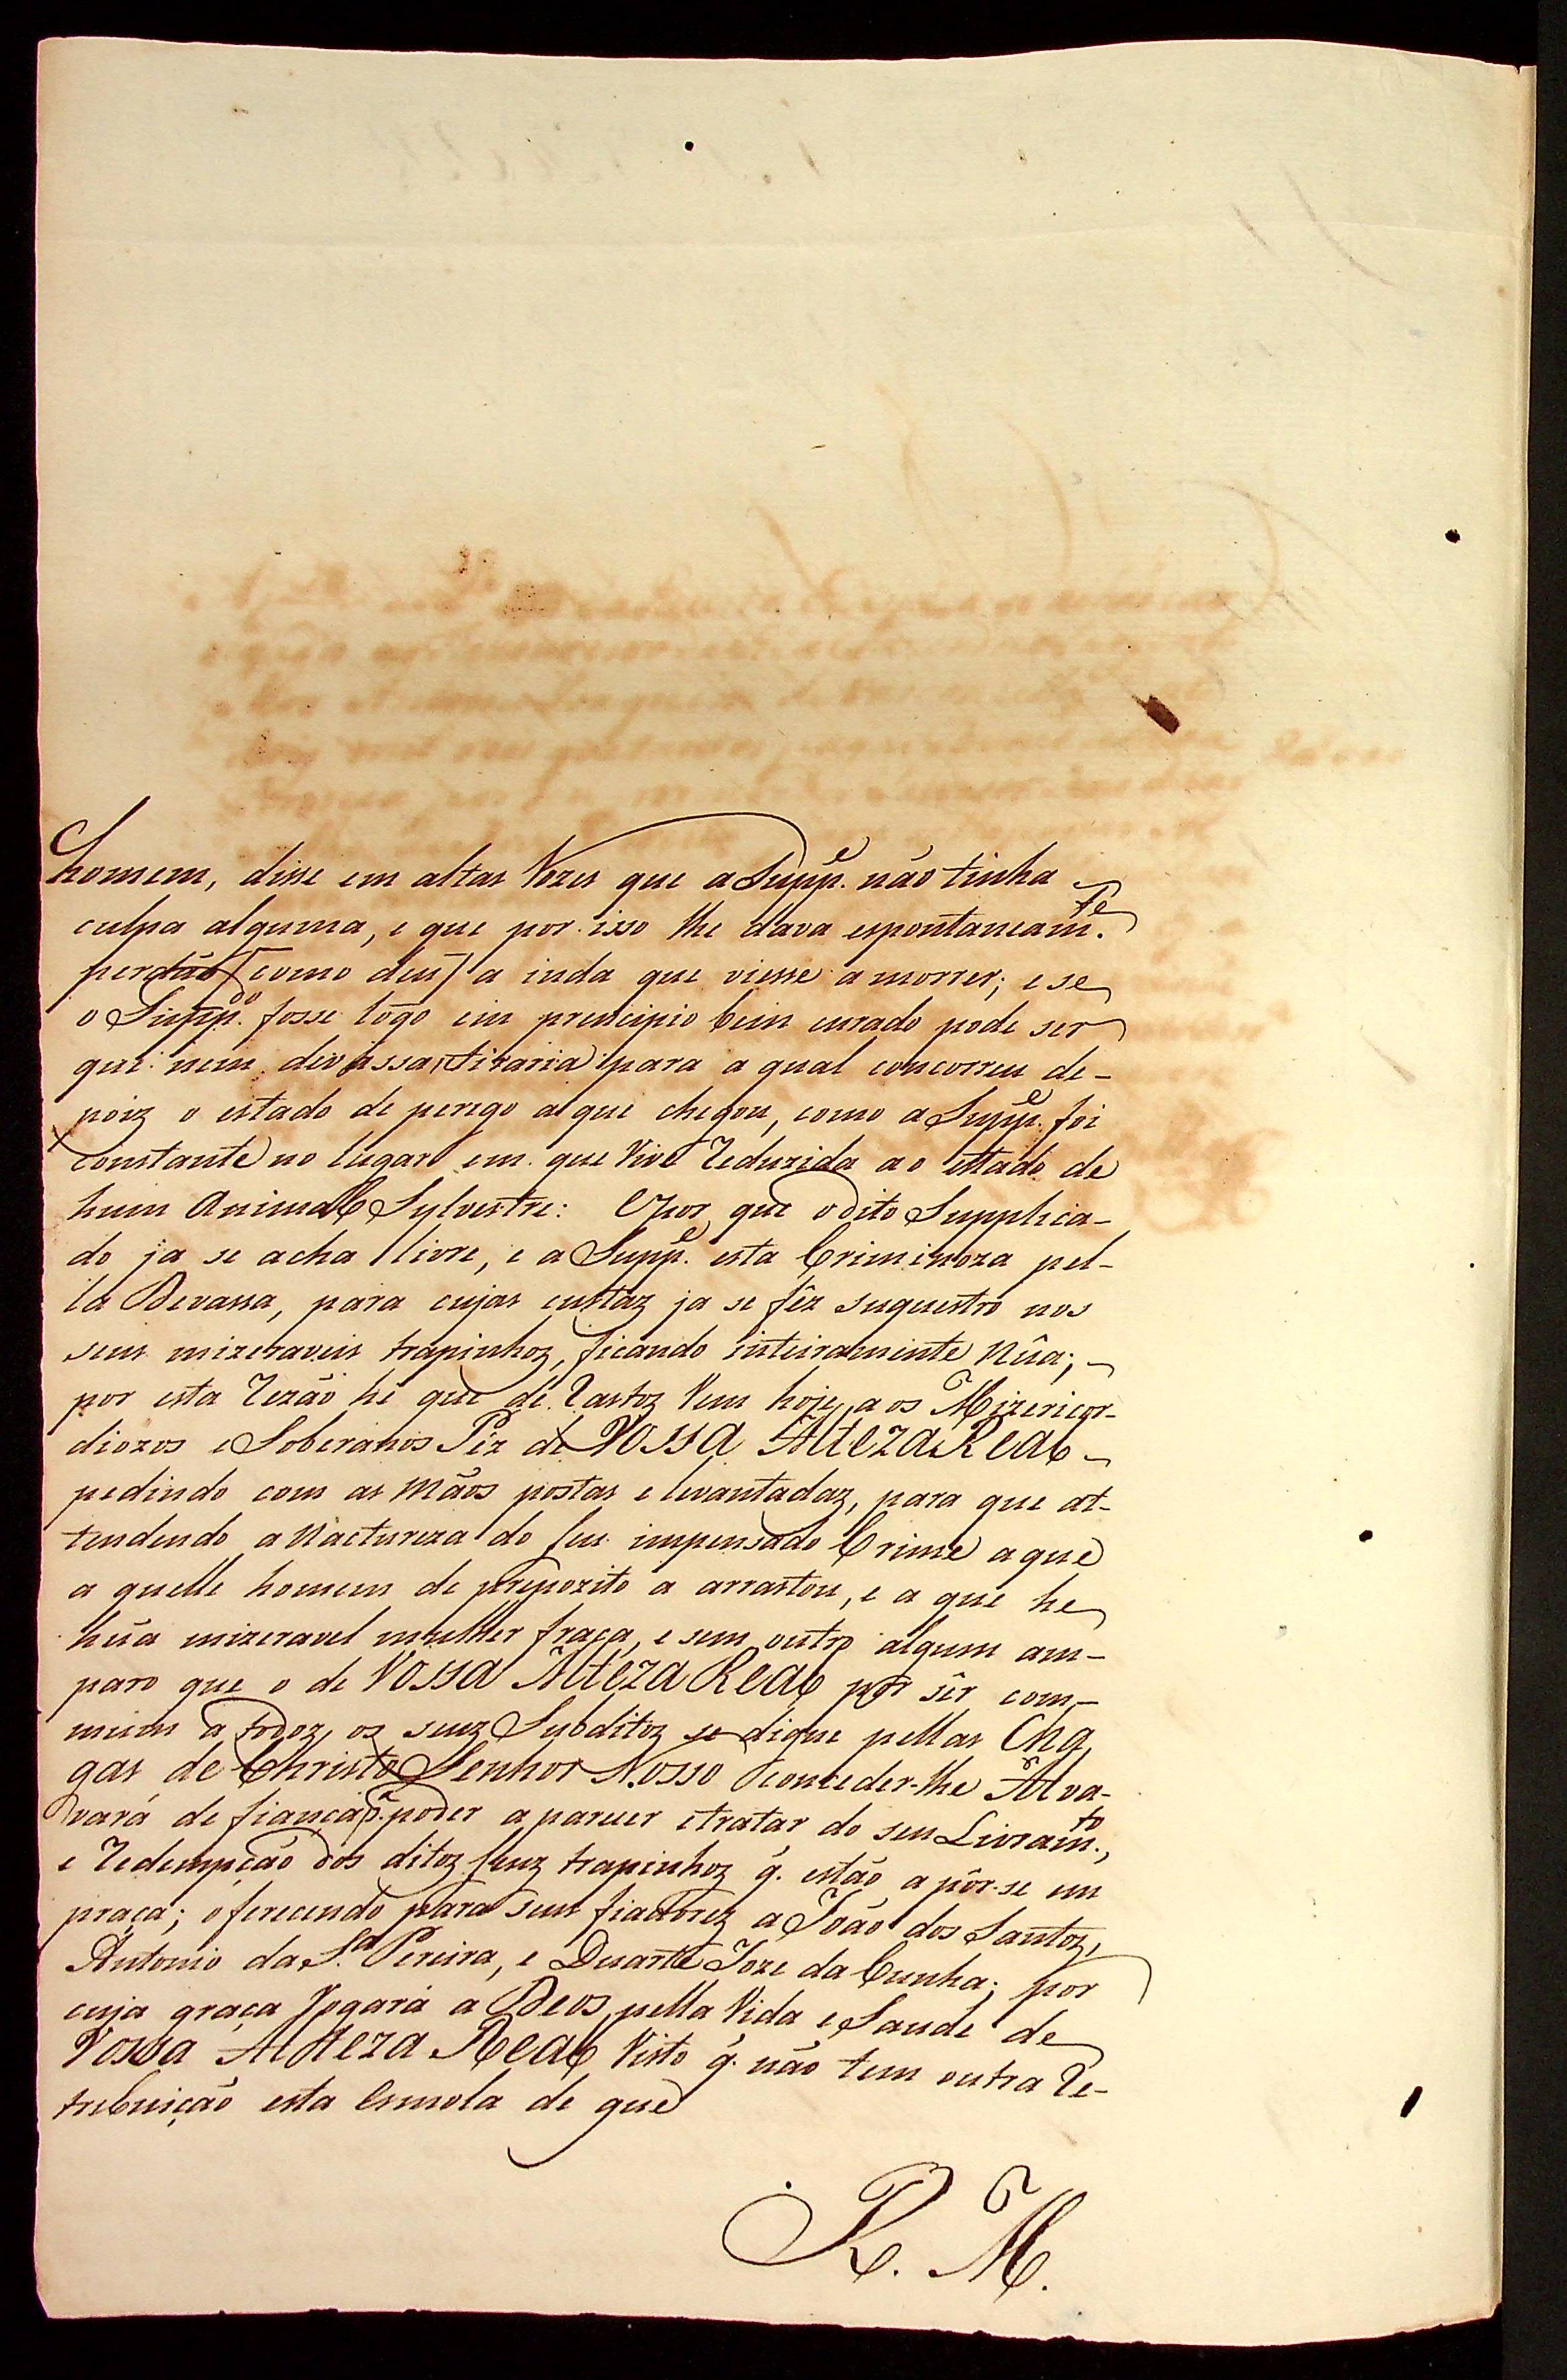 homem, disse em altas Vozes que a Supp.e não tinha
culpa alguma, e que por isso lhe dava espontaneam.te
perdão [como deu] a inda que viesse a morrer; e se
o Supp.do fosse lôgo em principio bem curado pode ser
que nem devassa se tiraria para a qual concorreu de-
poiz o estado de perigo a que chegou, como a Supp.e foi
constante no lugar em que Vive reduzida ao estado de
hum Animal Sylvestre: E por que o dito Supplica-
do ja se acha livre, e a Supp.e esta Criminoza pel-
la Devassa, para cujas custaz ja se fêz suquestro nos
seus mizeraveis trapinhoz, ficando inteiramente Nûa;
por esta rezão hé que de rastoz Vem hoje, a os Mizericor-
diozos e Soberanos Péz de Vossa Alteza Real
pedindo com as Mãos postas e levantadaz, para que at-
tendendo a Nactureza do seu impensado Crime a que
a quelle homem de prepozito a arrastou, e a que he
hũa mizeravel mulher fraca, e sem outro algum am-
paro que o de Vossa Alteza Real por sêr com-
mum a todoz, os seuz Subditoz se digne pellas Cha
gas de Christo Senhor Nosso conceder-lhe Alva-
vará de fiança p.a poder a parecer e tratar do seu Livram.to,
e redempção dos ditoz seuz trapinhoz q. estão a pôr-se em
praça; oferecendo para seus fiadorez a João dos Santoz,
Antonio da S.a Pereira, e Duarte Joze da Cunha; por
cuja graça rogará a Deos pella Vida e Saude de
Vossa Alteza Real Visto q. não tem outra re-
tribuição esta Esmola de que
R. M.